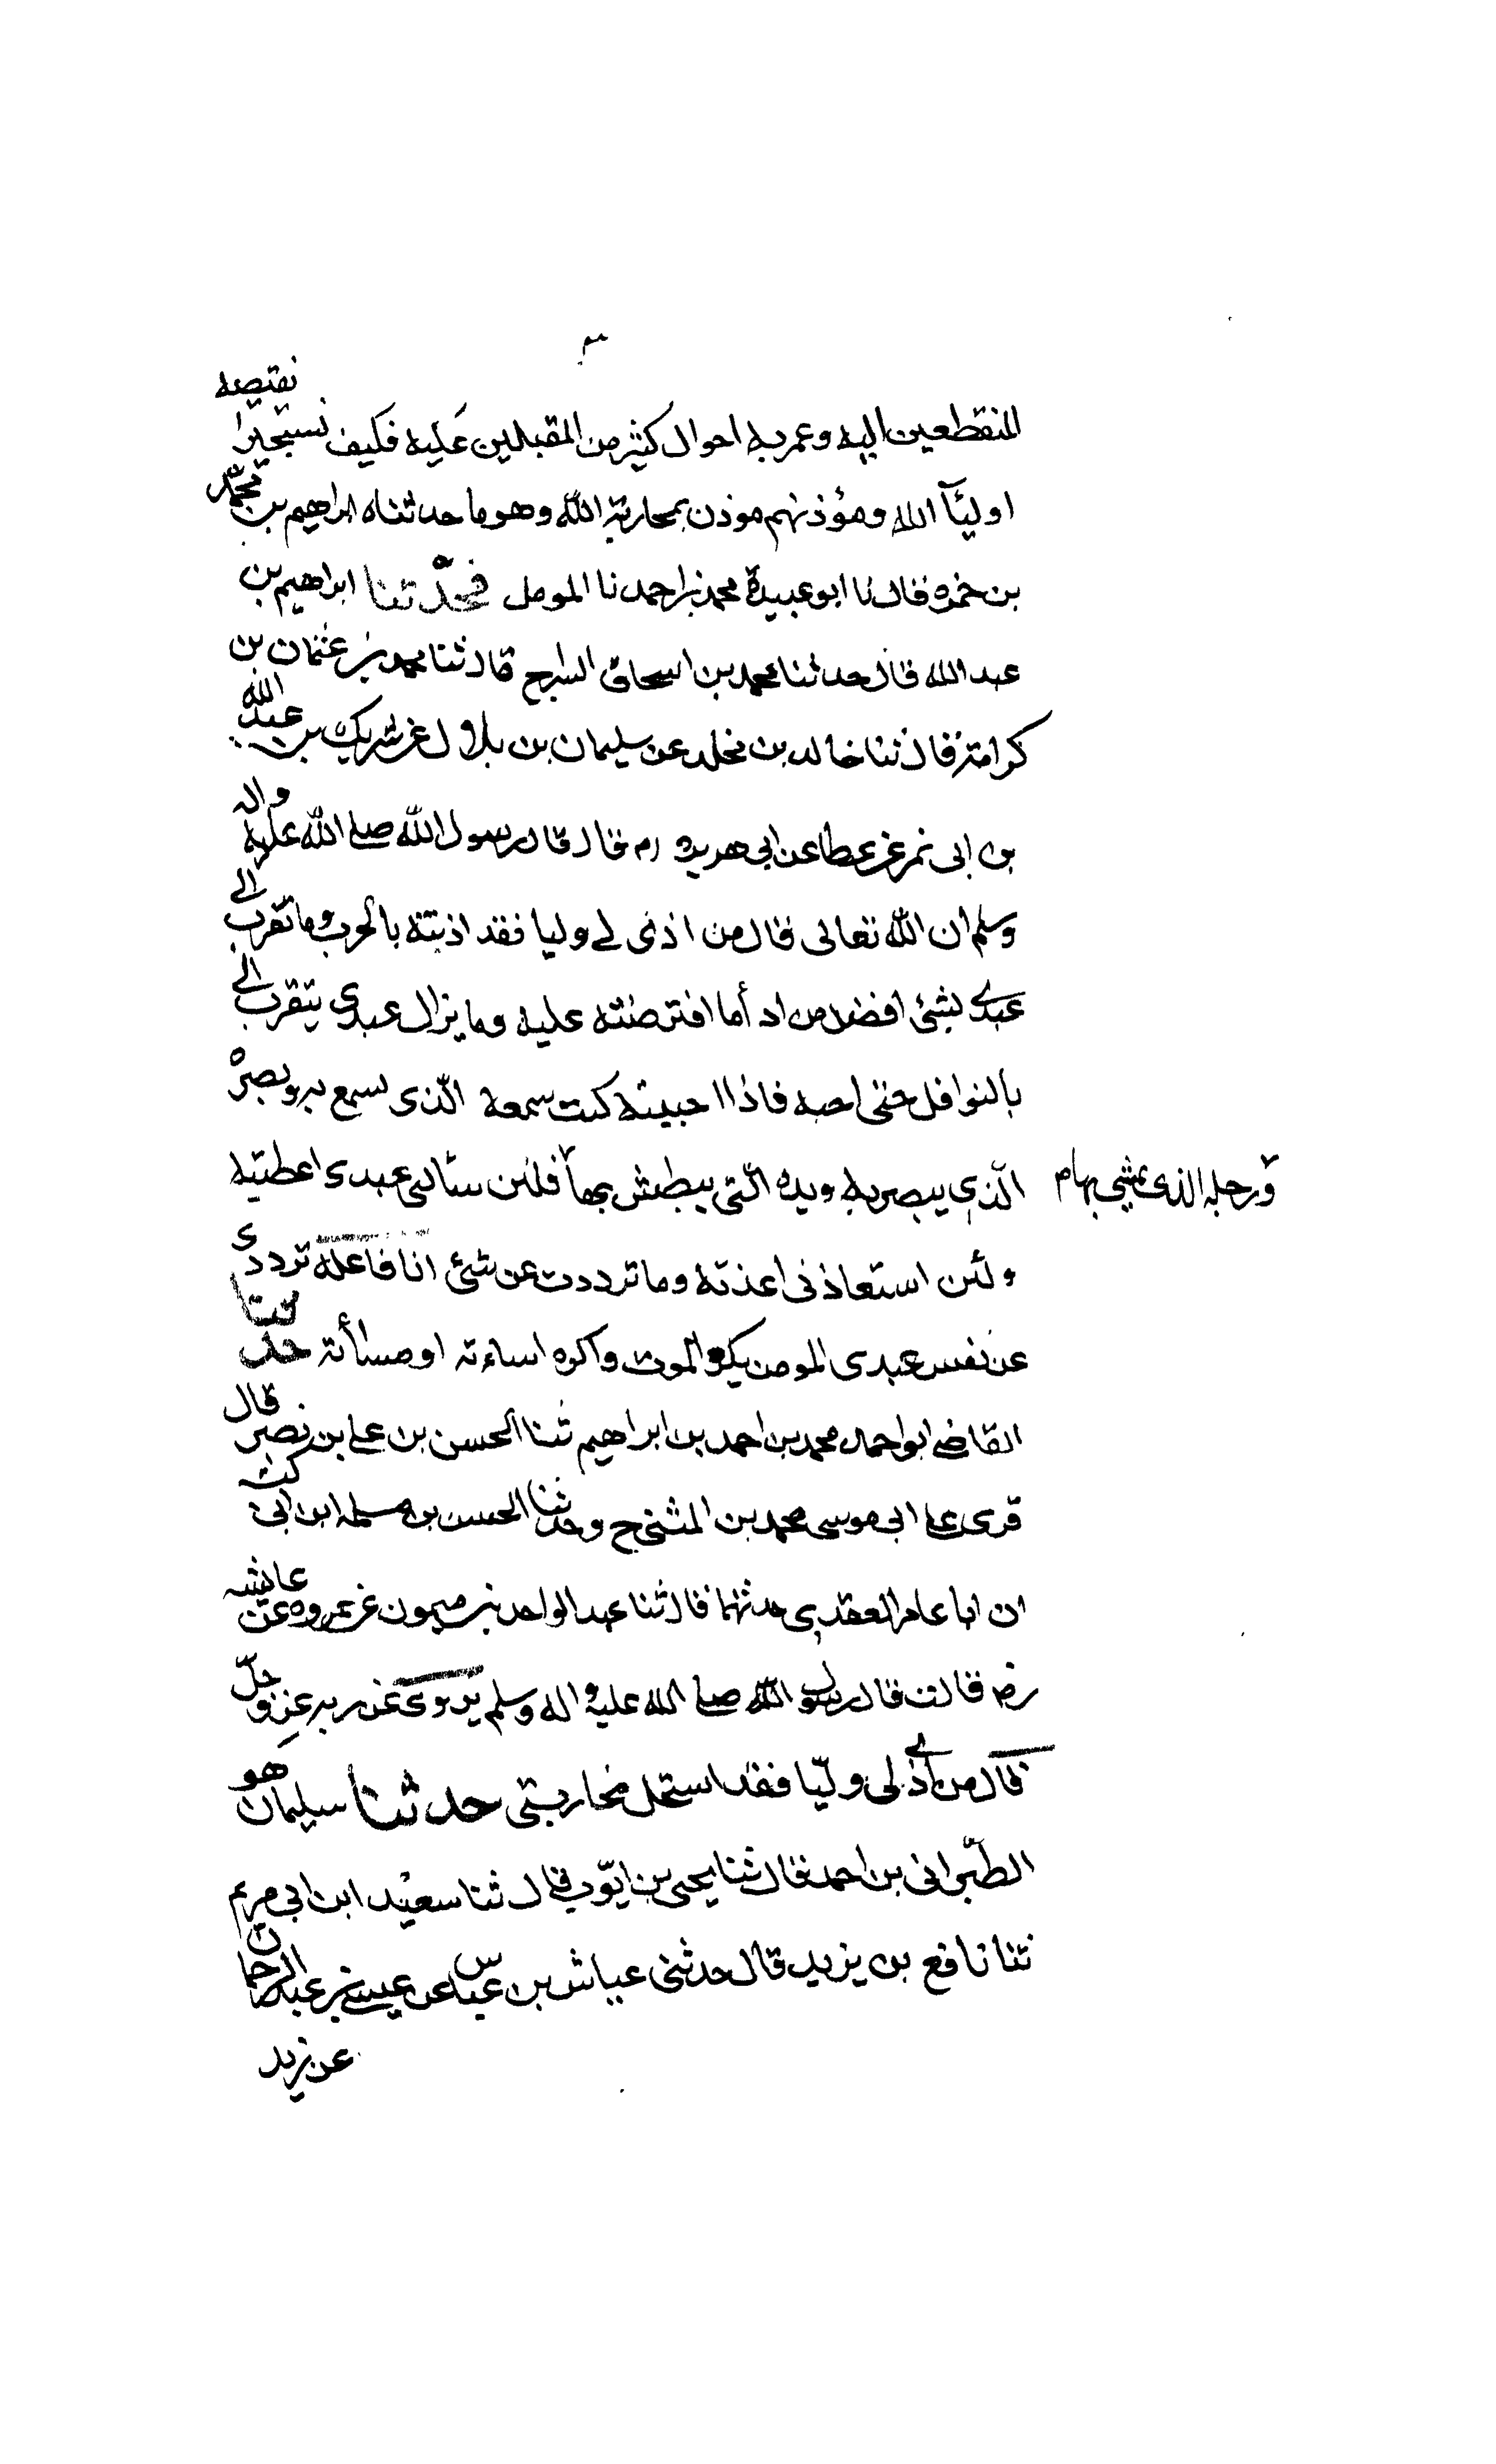 ٣
المنقطعين اليه وعمر به احوال كثير من المقبلين عليه فكيف نستجيز نقيصه
اوليآ الله ومؤذنهم موذن بمحاربة الله وهو ما حدثناه ابراهيم بن محمد
بن حمزه قال نا ابو عبيدة محمد بن احمد نا المومل فحدثنا ابراهيم بن
عبد الله قال حدثنا محمد بن اسحاق السراج قال ثنا محمد بن عثمان بن
كرامة قال ثنا خالد بن مخلد عن سليمان بن بلال عن شريك بن عبد الله
بن ابى نمر عن عطا عن ابى هريره قال قال رسول الله صلى الله عليه واله
وسلم ان الله تعالى قال من اذى لى وليا فقد اذنته بالحرب وما تقرب الى
عبدى بشئ افضل من اد أما افترضته عليه وما يزال عبدى يتقرب الى
بالنوافل حتى احبه فاذا احببته كنت سمعه الذى يسمع به وبصره
الذى يبصر به ويده التى يبطش بها فلئن سئالنى عبدى اعطيته
ورجله الذى يمشي بها م
ولئن استعاذنى اعذته وما ترددت عن شئ انا فاعله ترددى
عن نفس عبدى المومن يكره الموت واكره اساءته او مسأته حدثنا
القاضى ابو احمد محمد بن احمد بن ابراهيم ثنا الحسن بن على بن نصر قال
قرى على ابى موسى محمد بن المثنى ح وحدثنا الحسن بن مسلمه ابن ابى كبشه
ان ابا عامر العقدى حدثهما قال ثنا عبد الواحد بن ميمون عن عروه عن عايشه
رضـ قالت قال رسول الله صلى الله عليه واله وسلم يروى عن ربه عز وجل
قال من اذى لى وليّا فقد استحل محاربتى حدثنا سليمان هو
الطبرانى بن احمد قال ثنا يحيى بن ايوب قال ثنا سعيد ابن ابى مريم
ثنا نافع بن يزيد قال حدثنى عياش بن عباس عن عيسى بن عبد الرحمان
عن زيد